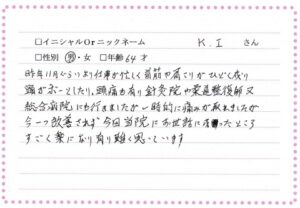 □イニシャルOrニックネーム K.I さん
□性別 男・女 □年齢 64 才
昨年11月くらいより仕事が忙しく首筋や肩こりがひどくなり
頭がボーとしたり、頭痛も有り針灸院や柔道整復師又
総合病院にも行きましたが一時的に痛みが取れましたが
今一つ改善されず今回当院にお世話になったところ
すごく楽になり有り難く思っています